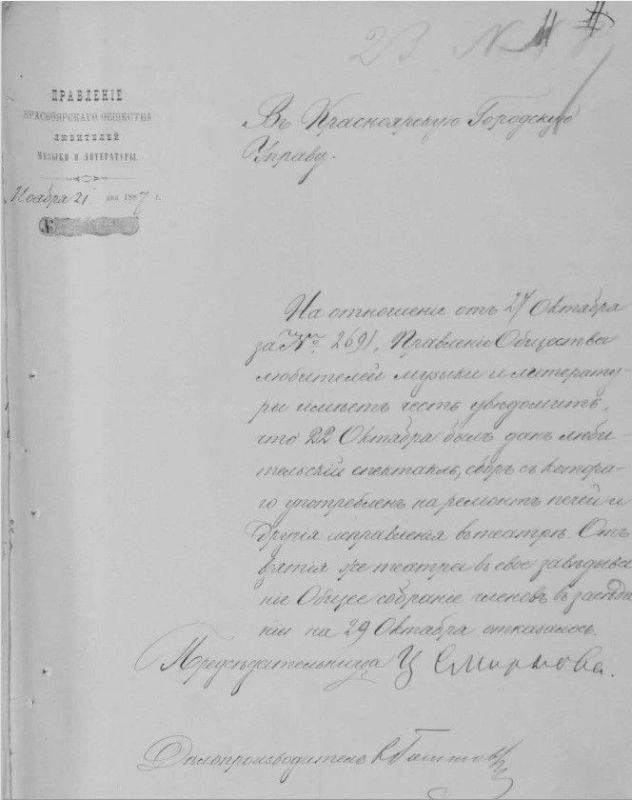 23 N
ПРАВЛЕНІЕ
КРАСНОЯРСКАГО ОБЩЕСТВА
ЛЮБИТЕЛЕЙ
МУЗЫКИ И ЛИТЕРАТУРЫ.
Ноября 21 дня 1887 г.
№
Въ Красноярскую Городскую
Управу.
На отношеніе отъ 27 Октября
за № 2691, Правленіе Общества
любителей музыки и литерату-
ры имѣетъ честь увѣдомить,
что 22 Октября былъ данъ люби-
тельскій спектакль, сборъ съ котора-
го употребленъ на ремонтъ печей и
другія исправленія въ театрѣ. Отъ
взятія же театра въ свое завѣдыва
ніе Общее собраніе членовъ въ засѣда
ніи на 29 Октября отказалось.
Предсѣдательница Ц Смирнова.
Дѣлопроизводитель